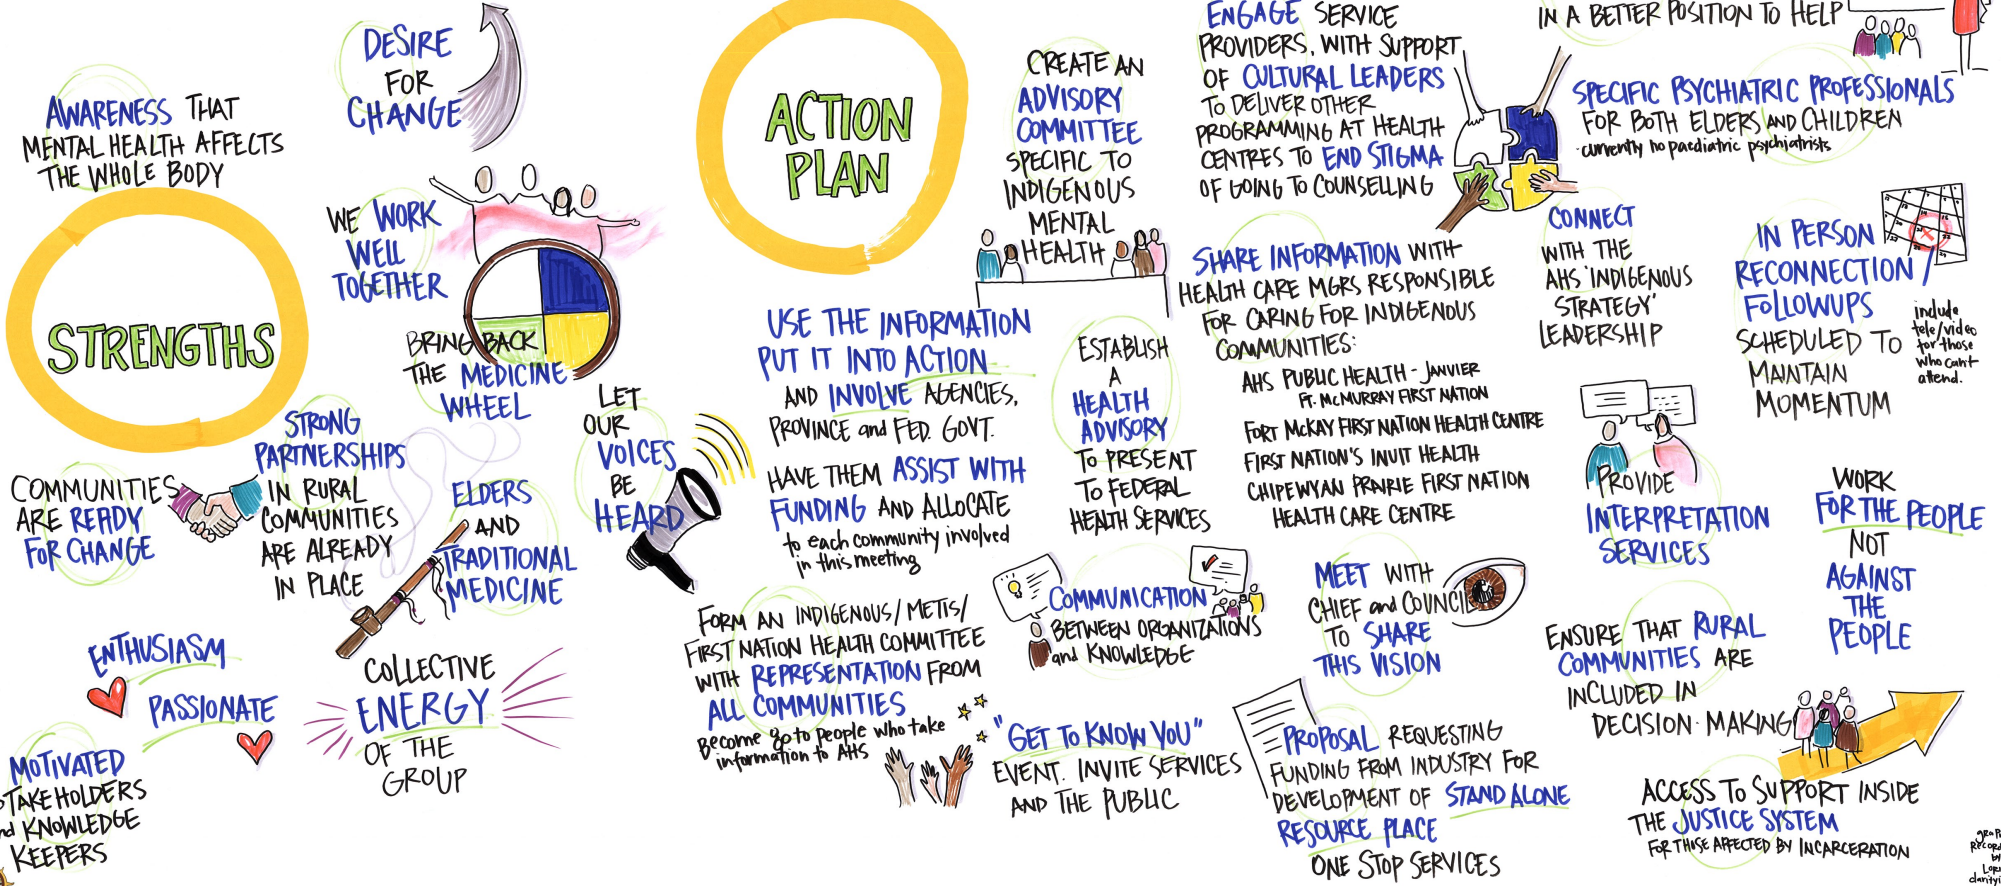 AWARENESS THAT
MENTAL HEALTH AFFECTS
THE WHOLE BODY
DESIRE
FOR
CHANGE
STRENGTHS
WE WORK
WELL
TOGETHER
BRING BACK
THE MEDICINE
WHEEL
STRONG
PARTNERSHIPS
IN RURAL
COMMUNITIES
ARE ALREADY
IN PLACE
COMMUNITIES
ARE READY
FOR CHANGE
ELDERS
AND
TRADITIONAL
MEDICINE
LET
OUR
VOICES
BE
HEARD
ENTHUSIASM
PASSIONATE
COLLECTIVE
ENERGY
OF THE
GROUP
MOTIVATED
STAKEHOLDERS
nd KNOWLEDGE
KEEPERS
ACTION
PLAN
USE THE INFORMATION
PUT IT INTO ACTION
AND INVOLVE AGENCIES,
PROVINCE and FED. GOVT.
HAVE THEM ASSIST WITH
FUNDING AND ALLOCATE
to each community involved
in this meeting
FORM AN INDIGENOUS/METIS/
FIRST NATION HEALTH COMMITTEE
WITH REPRESENTATION FROM
ALL COMMUNITIES
Become go to people who take
information to AHS
CREATE AN
ADVISORY
COMMITTEE
SPECIFIC TO
INDIGENOUS
MENTAL
HEALTH
ESTABLISH
A
HEALTH
ADVISORY
TO PRESENT
TO FEDERAL
HEALTH SERVICES
COMMUNICATION
BETWEEN ORGANIZATIONS
and KNOWLEDGE
"GET TO KNOW YOU"
EVENT. INVITE SERVICES
AND THE PUBLIC
ENGAGE SERVICE
PROVIDERS, WITH SUPPORT
OF CULTURAL LEADERS
TO DELIVER OTHER
PROGRAMMING AT HEALTH
CENTRES TO END STIGMA
OF GOING TO COUNSELLING
SHARE INFORMATION WITH
HEALTH CARE MGRS RESPONSIBLE
FOR CARING FOR INDIGENOUS
COMMUNITIES:
AHS PUBLIC HEALTH - JANVIER
FT. MCMURRAY FIRST NATION
FORT MCKAY FIRST NATION HEALTH CENTRE
FIRST NATION'S INUIT HEALTH
CHIPEWYAN PRAIRIE FIRST NATION
HEALTH CARE CENTRE
MEET WITH
CHIEF and COUNCIL
TO SHARE
THIS VISION
PROPOSAL REQUESTING
FUNDING FROM INDUSTRY FOR
DEVELOPMENT OF STAND ALONE
RESOURCE PLACE
ONE STOP SERVICES
IN A BETTER POSITION TO HELP
SPECIFIC PSYCHIATRIC PROFESSIONALS
FOR BOTH ELDERS AND CHILDREN
- currently no paediatric psychiatrists
CONNECT
WITH THE
AHS 'INDIGENOUS
STRATEGY'
LEADERSHIP
IN PERSON
RECONNECTION /
FOLLOWUPS
SCHEDULED TO
MAINTAIN
MOMENTUM
include
tele/video
for those
who can't
attend.
PROVIDE
INTERPRETATION
SERVICES
WORK
FOR THE PEOPLE
NOT
AGAINST
THE
PEOPLE
ENSURE THAT RURAL
COMMUNITIES ARE
INCLUDED IN
DECISION-MAKING
ACCESS TO SUPPORT INSIDE
THE JUSTICE SYSTEM
FOR THOSE AFFECTED BY INCARCERATION